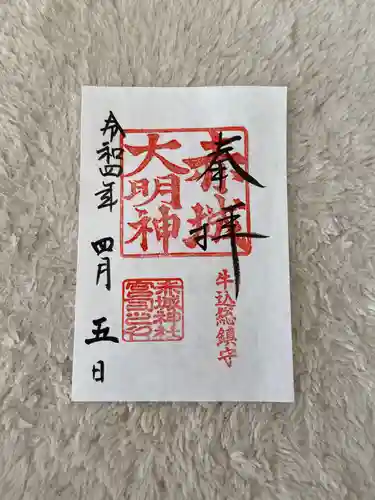 奉拝
赤城
大明神
牛込総鎮守
赤城神社
令和四年 四月 五日